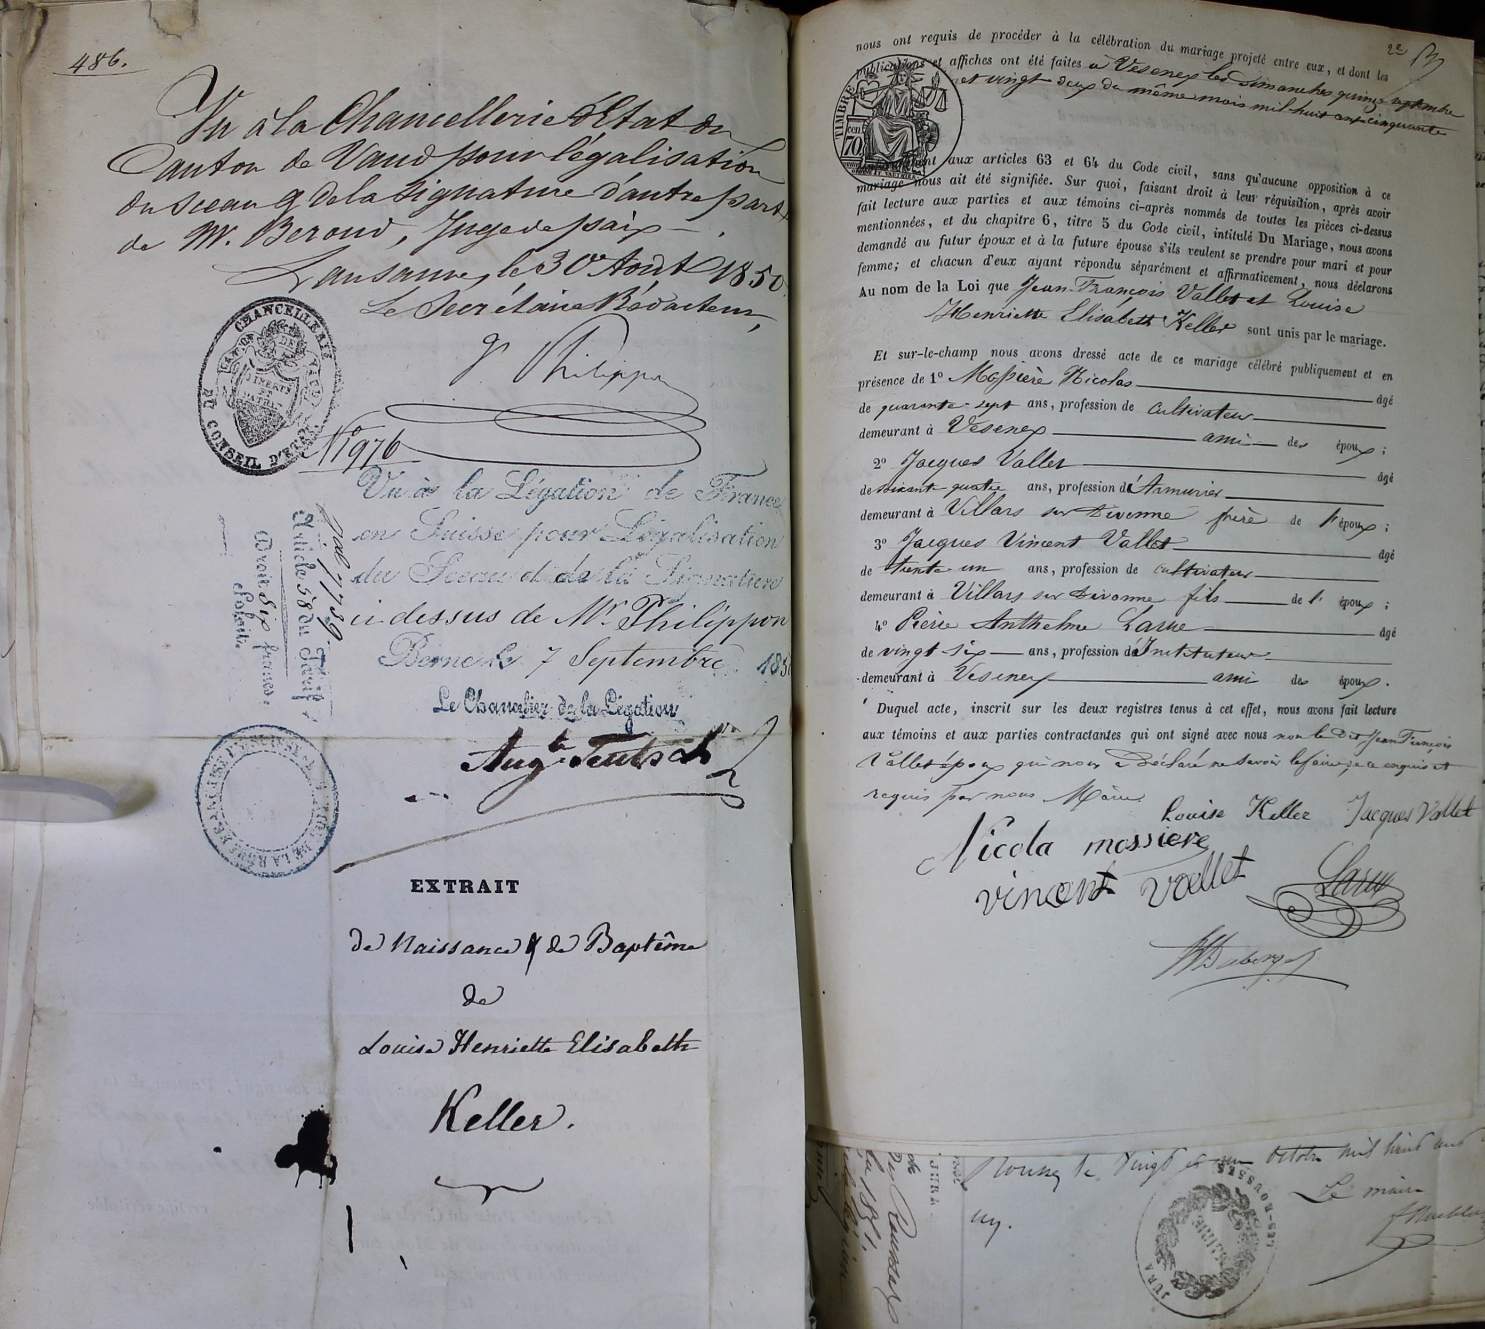 486.
Vu à la Chancellerie d'Etat du
Canton de Vaud pour légalisation
du sceau & de la signature d'autre part
de Mr. Beroud, Juge de paix
Lausanne, le 30e Août 1850.
Le Secrétaire Rédacteur,
Philippon
CHANCELLERIE
DU CONSEIL D'ETAT
CANTON DE VAUD
LIBERTÉ
ET
PATRIE
No 1976
Vu à la Légation de France
en Suisse pour Légalisation
du Sceau et de la Signature
ci dessus de Mr Philippon
Berne le 7 Septembre 185
Le Chancelier de la Légation
Augte Teutsch
Article 58 du Tarif
Droit Six francs
EXTRAIT
de Naissance & de Baptême
de
Louise Henriette Elisabeth
Keller.
22
nous ont requis de procéder à la célébration du mariage projeté entre eux, et dont les
publications et affiches ont été faites à Vesenex les dimanches quinze septembre
et vingt deux du même mois mil huit cent cinquante
TIMBRE
70
aux articles 63 et 64 du Code civil, sans qu'aucune opposition à ce
mariage nous ait été signifiée. Sur quoi, faisant droit à leur réquisition, après avoir
fait lecture aux parties et aux témoins ci-après nommés de toutes les pièces ci-dessus
mentionnées, et du chapitre 6, titre 5 du Code civil, intitulé Du Mariage, nous avons
demandé au futur époux et à la future épouse s'ils veulent se prendre pour mari et pour
femme; et chacun d'eux ayant répondu séparément et affirmativement, nous déclarons
Au nom de la Loi que Jean-François Vallet et Louise
Henriette Elisabeth Keller sont unis par le mariage.
Et sur-le-champ nous avons dressé acte de ce mariage célébré publiquement et en
présence de 1° Massière Nicolas âgé
de quarante-sept ans, profession de cultivateur
demeurant à Vesenex ami des époux ;
2° Jacques Vallet âgé
de soixant quatre ans, profession d'Armurier
demeurant à Villars sur Divonne frère de l'époux ;
3° Jacques Vincent Vallet âgé
de trente un ans, profession de cultivateur
demeurant à Villars sur Divonne fils de l' époux ;
4° Pierre Anthelme Larue âgé
de vingt six ans, profession d'Instituteur
demeurant à Vesenex ami des époux.
Duquel acte, inscrit sur les deux registres tenus à cet effet, nous avons fait lecture
aux témoins et aux parties contractantes qui ont signé avec nous non le dit Jean François
Vallet époux qui nous a déclaré ne savoir le faire de ce enquis et
requis par nous Maire.
Louise Keller Jacques Vallet
Nicola massiere
vincent vallet Larue
le Vingt et un Octobre mil huit cent
Le maire
MAIRIE
LES-ROUSSES
JURA